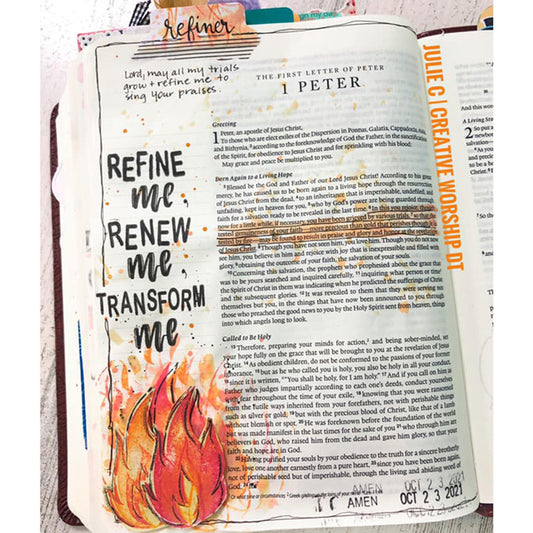 on my da
refiner
Lord, may all my trials
grow + refine me to
sing your praises.
REFINE
me,
RENEW
me,
TRANSFORM
me
THE FIRST LETTER OF PETER
1 PETER
Greeting
1 Peter, an apostle of Jesus Christ,
To those who are elect exiles of the Dispersion in Pontus, Galatia, Cappadocia, Asia,
and Bithynia, 2 according to the foreknowledge of God the Father, in the sanctification
of the Spirit, for obedience to Jesus Christ and for sprinkling with his blood:
May grace and peace be multiplied to you.
Born Again to a Living Hope
3 Blessed be the God and Father of our Lord Jesus Christ! According to his great
mercy, he has caused us to be born again to a living hope through the resurrection
of Jesus Christ from the dead, 4 to an inheritance that is imperishable, undefiled, and
unfading, kept in heaven for you, 5 who by God's power are being guarded through
faith for a salvation ready to be revealed in the last time. 6 In this you rejoice, though
now for a little while, if necessary, you have been grieved by various trials, 7 so that the
tested genuineness of your faith—more precious than gold that perishes though it is
tested by fire—may be found to result in praise and glory and honor at the revelation
of Jesus Christ. 8 Though you have not seen him, you love him. Though you do not now
see him, you believe in him and rejoice with joy that is inexpressible and filled with
glory, 9 obtaining the outcome of your faith, the salvation of your souls.
10 Concerning this salvation, the prophets who prophesied about the grace that
was to be yours searched and inquired carefully, 11 inquiring what person or time
the Spirit of Christ in them was indicating when he predicted the sufferings of Christ
and the subsequent glories. 12 It was revealed to them that they were serving not
themselves but you, in the things that have now been announced to you through
those who preached the good news to you by the Holy Spirit sent from heaven, things
into which angels long to look.
Called to Be Holy
13 Therefore, preparing your minds for action, and being sober-minded, set
your hope fully on the grace that will be brought to you at the revelation of Jesus
Christ. 14 As obedient children, do not be conformed to the passions of your former
ignorance, 15 but as he who called you is holy, you also be holy in all your conduct,
16 since it is written, "You shall be holy, for I am holy." 17 And if you call on him as
Father who judges impartially according to each one's deeds, conduct yourselves
with fear throughout the time of your exile, 18 knowing that you were ransomed
from the futile ways inherited from your forefathers, not with perishable things
such as silver or gold, 19 but with the precious blood of Christ, like that of a lamb
without blemish or spot. 20 He was foreknown before the foundation of the world
but was made manifest in the last times for the sake of you 21 who through him are
believers in God, who raised him from the dead and gave him glory, so that your
faith and hope are in God.
22 Having purified your souls by your obedience to the truth for a sincere brotherly
love, love one another earnestly from a pure heart, 23 since you have been born again,
not of perishable seed but of imperishable, through the living and abiding word of
God; 24
AMEN OCT 23 2021
AMEN OCT 23 2021
JULIE C | CREATIVE WORSHIP DT
And this wor
A Living Sto
2 So put a